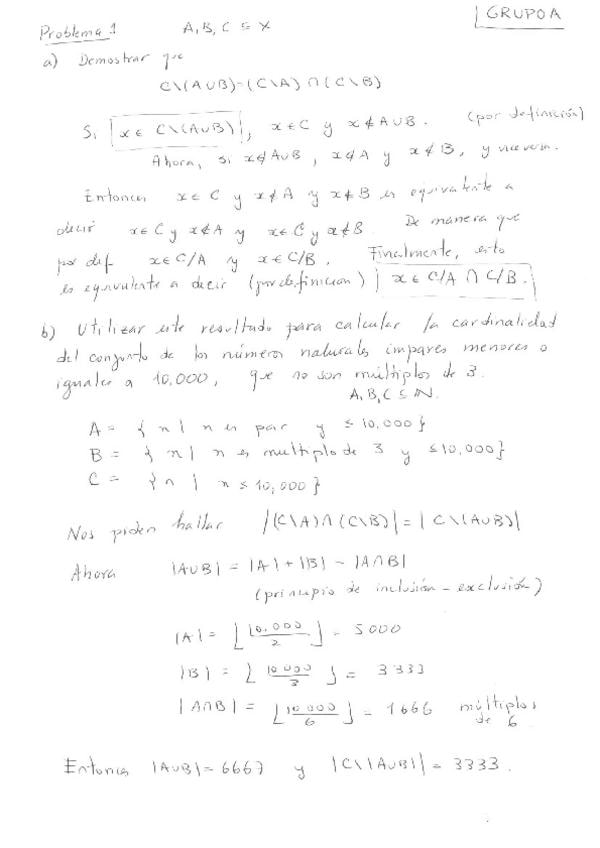 GRUPO A
Problema 1 A, B, C ⊆ X
a) Demostrar que
C\(A∪B)=(C\A)∩(C\B)
Si x∈ C\(A∪B), x∈C y x∉A∪B. (por definición)
Ahora, si x∉A∪B, x∉A y x∉B, y viceversa.
Entonces x∈C y x∉A y x∉B es equivalente a
decir x∈C y x∉A y x∈C y x∉B. De manera que
por def x∈C/A y x∈C/B. Finalmente, esto
es equivalente a decir (por definicion) x∈C/A ∩ C/B.
b) Utilizar este resultado para calcular la cardinalidad
del conjunto de los números naturales impares menores o
iguales a 10,000, que no son múltiplos de 3.
A, B, C ⊆ ℕ.
A = { n | n es par y ≤ 10,000}
B = { n | n es multiplo de 3 y ≤10,000}
C = { n | n ≤ 10,000}
Nos piden hallar |(C\A)∩(C\B)| = |C\(A∪B)|
Ahora |A∪B| = |A|+|B| - |A∩B|
(principio de inclusión-exclusión)
|A| = ⌊10.000/2⌋ = 5000
|B| = ⌊10000/3⌋ = 3333
|A∩B| = ⌊10000/6⌋ = 1666 múltiplos
de 6
Entonces |A∪B| = 6667 y |C\|A∪B|| = 3333.